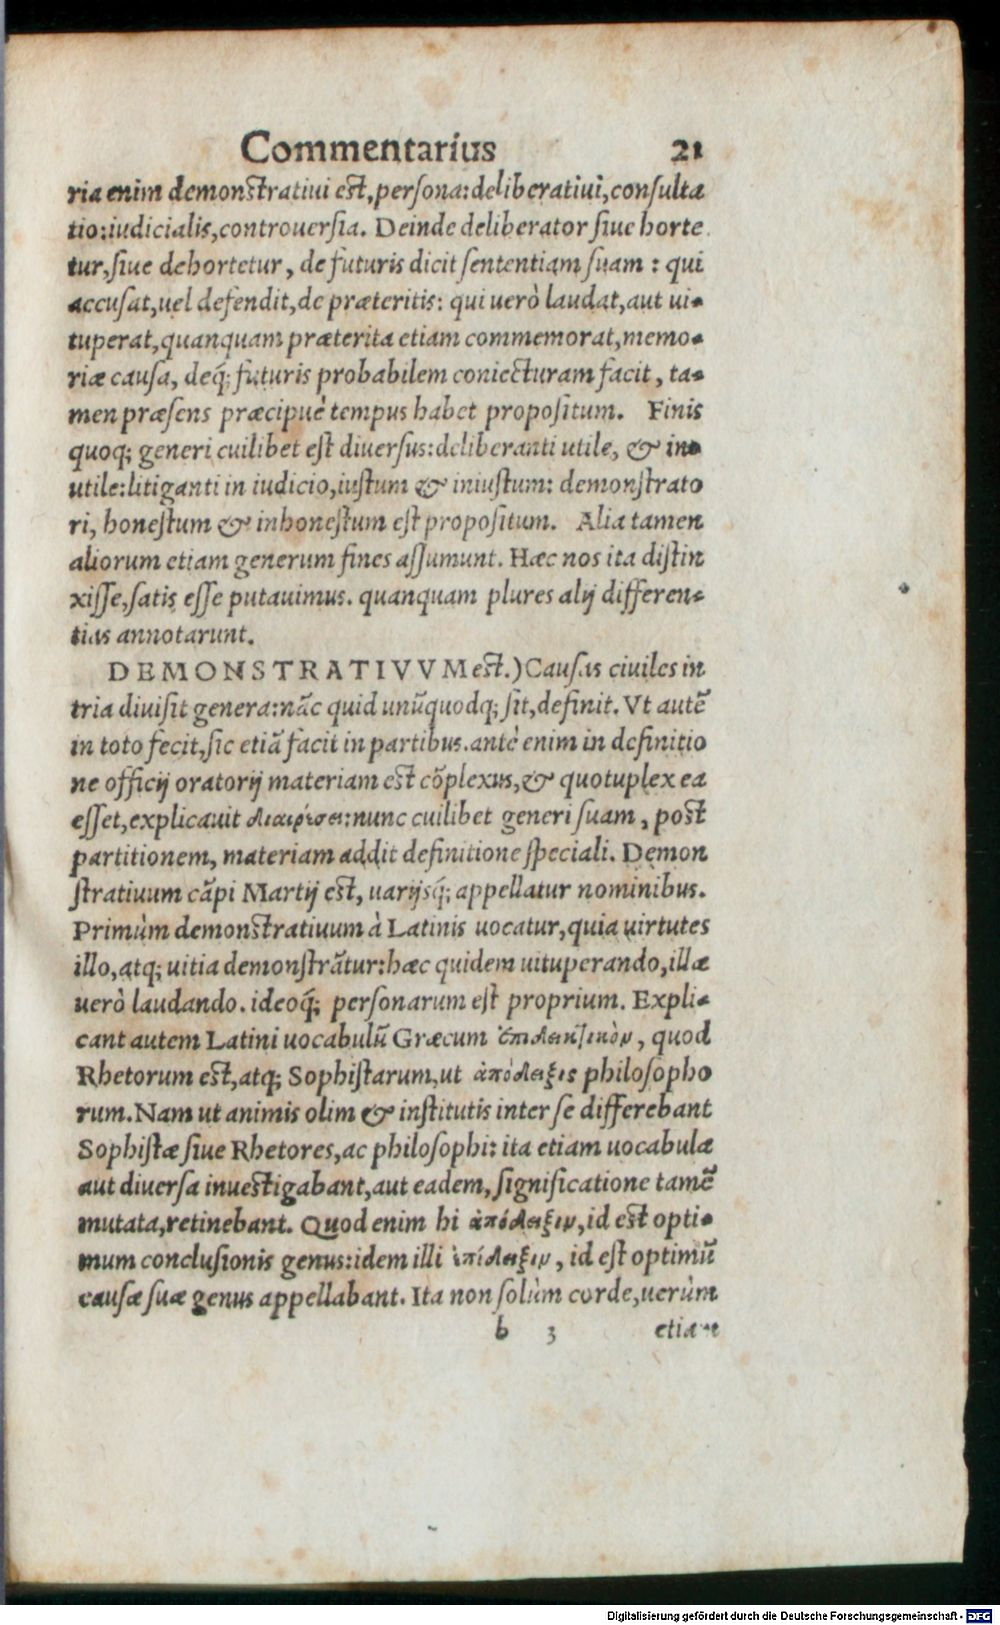 Commentarius 21
ria enim demonstratiui est, persona: deliberatiui, consulta
tio: iudicialis, controuersia. Deinde deliberator siue horte
tur, siue dehortetur, de futuris dicit sententiam suam: qui
accusat, uel defendit, de præteritis: qui uerò laudat, aut ui-
tuperat, quanquam præterita etiam commemorat, memo-
riæ causa, deq́; futuris probabilem coniecturam facit, ta-
men præsens præcipuè tempus habet propositum. Finis
quoq; generi cuilibet est diuersus: deliberanti utile, & in-
utile: litiganti in iudicio, iustum & iniustum: demonstrato
ri, honestum & inhonestum est propositum. Alia tamen
aliorum etiam generum fines assumunt. Hæc nos ita distin
xisse, satis esse putauimus. quanquam plures alij differen-
tias annotarunt.
DEMONSTRATIVVM est.) Causas ciuiles in
tria diuisit genera: nūc quid unūquodq; sit, definit. Vt autē
in toto fecit, sic etiā facit in partibus. antè enim in definitio
ne officij oratorij materiam est cōplexus, & quotuplex ea
esset, explicauit διαιρέσει: nunc cuilibet generi suam, post
partitionem, materiam addit definitione speciali. Demon
stratiuum cāpi Martij est, uarijsq́; appellatur nominibus.
Primùm demonstratiuum à Latinis uocatur, quia uirtutes
illo, atq; uitia demonstrātur: hæc quidem uituperando, illæ
uerò laudando. ideoq́; personarum est proprium. Expli-
cant autem Latini uocabulū Græcum ἐπιδεικτικὸν, quod
Rhetorum est, atq; Sophistarum, ut ἀπόδειξις philosopho
rum. Nam ut animis olim & institutis inter se differebant
Sophistæ siue Rhetores, ac philosophi: ita etiam uocabula
aut diuersa inuestigabant, aut eadem, significatione tamē
mutata, retinebant. Quod enim hi ἀπόδειξιν, id est opti-
mum conclusionis genus: idem illi ἐπίδειξιν, id est optimū
causæ suæ genus appellabant. Ita non solùm corde, uerùm
b 3 etiam
Digitalisierung gefördert durch die Deutsche Forschungsgemeinschaft - DFG